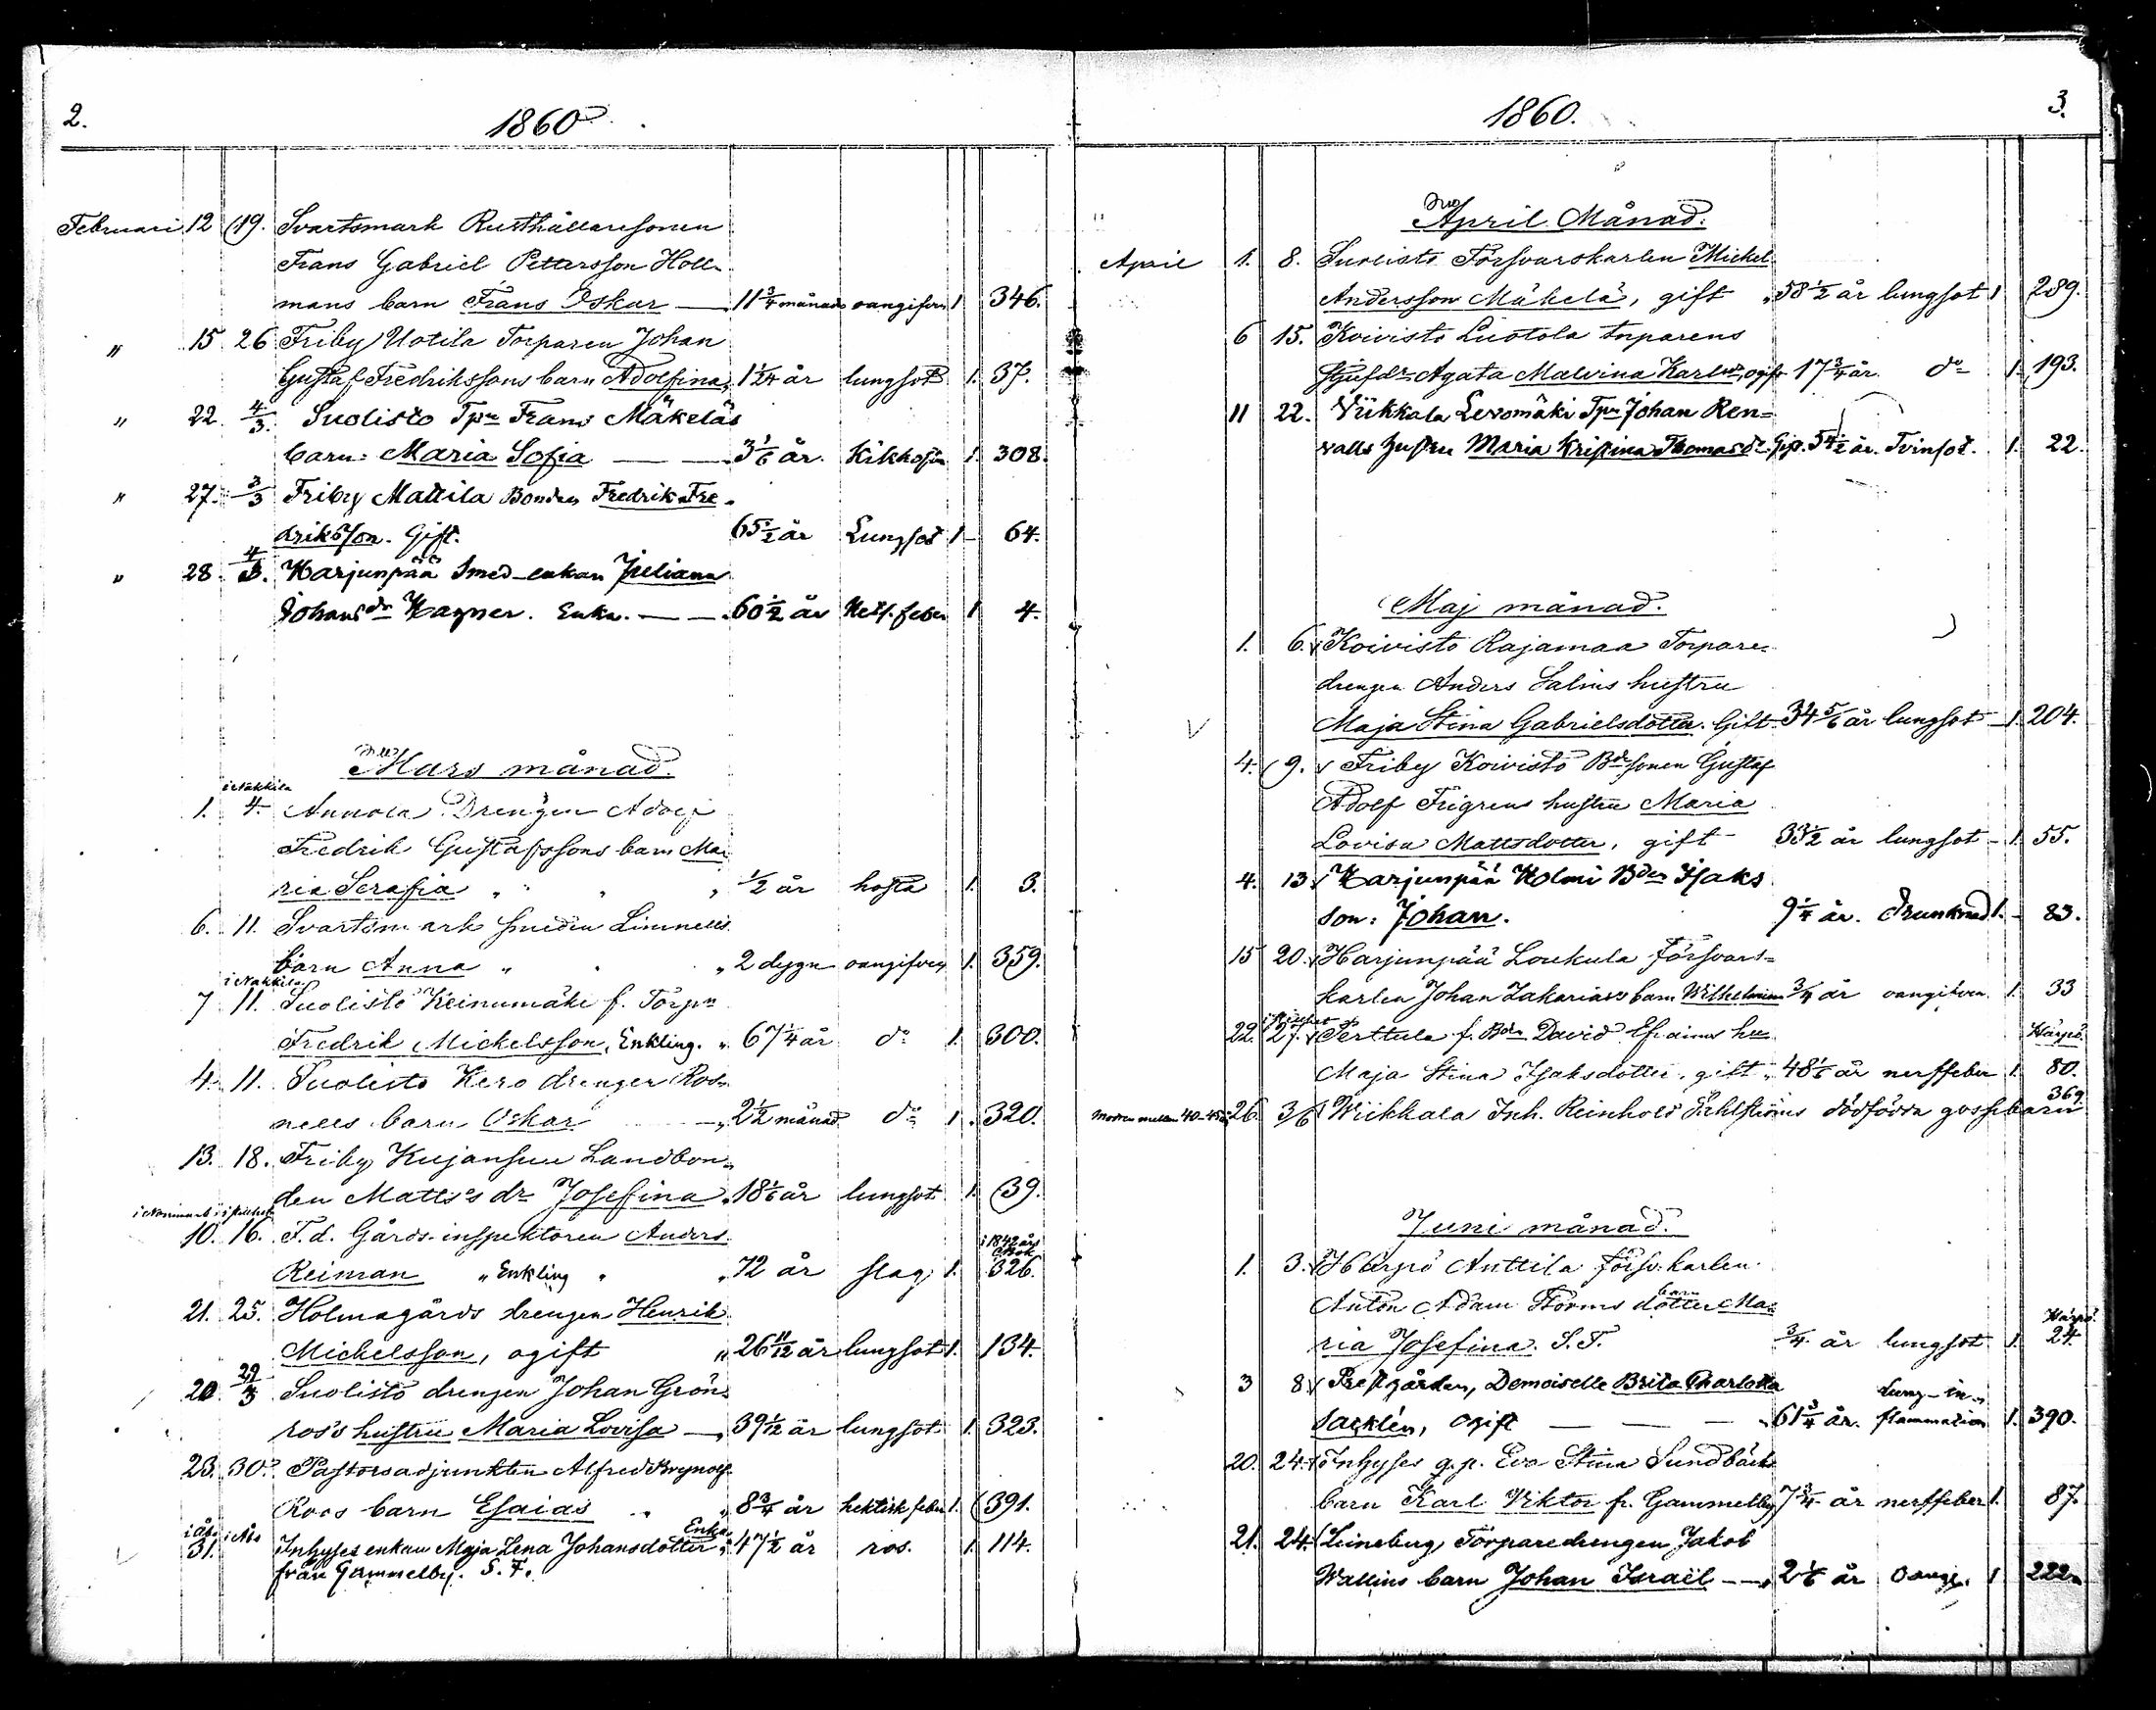 2.
1860
Februari 12 19. Svartsmark Rusthållaresonen
Frans Gabriel Pettersson Holl-
mans barn Frans Oskar — 11 3/4 månad oangifven 1 346.
" 15 26 Friby Uotila Torparen Johan
Gustaf Fredrikssons barn Adolfina, 1 1/24 år lungsot 1. 37.
" 22. 4/3. Suolisto Tpn Frans Mäkeläs
barn: Maria Sofia — 3 1/6 år. Kikhosta 1. 308.
" 27. 3/3 Friby Mattila Bonden Fredrik Fre-
driksson. Gift. 65 1/2 år Lungsot 1 64.
" 28. 4/3. Harjunpää Smed-enkan Juliana
Johansdr Wagner. Enka. — 60 1/2 år Net. feber 1 4.
Mars månad.
i Nakkila
1. 4. Annola Drengen Adolf
Fredrik Gustafssons barn Ma-
ria Serafia " " " 1/2 år hosta 1. 3.
6. 11. Svartsmark Smeden Linnells
barn Anna " " " 2 dygn oangifven 1. 359.
i Nakkila
7 11. Suolisto Keinumäki f. Torpn
Fredrik Michelsson, Enkling. " 67 1/4 år do 1. 300.
4. 11. Suolisto Kero drengen Ros-
nells barn Oskar — " 2 1/2 månad do 1. 320.
13. 18. Friby Kujansuu Landbon-
den Matts's dr Josefina " 18 1/6 år lungsot 1. 39.
10. 16. F. d. Gårds-inspektoren Anders
i 1842 års
C. Bok
Reiman " Enkling " " 72 år slag 1. 326.
21. 25. Holmagårds drengen Henrik
Michelsson, ogift " 26 11/12 år lungsot 1. 134.
20. 29/3 Suolisto drengen Johan Grön-
ros's hustru Maria Lovisa — " 39 1/12 år lungsot 1. 323.
23. 30. Pastorsadjunkten Alfred Brynolf
Roos barn Esaias " " 8 3/4 år hektisk feber 1. 391.
i Åbo i Åbo Enka
31. Inhyses enkan Maja Lena Johansdotter " 47 1/2 år ros. 1. 114.
från Gammelby. S. F.
1860.
3.
April Månad.
April 1. 8. Suolisto Försvarskarlen Michel
Andersson Mäkelä, gift " 58 1/2 år lungsot 1 289.
6 15. Koivisto Luotola torparens
Agata Malvina Karlsdr, ogift 17 3/4 år. do 1. 193.
11 22. Viikkala Levomäki Tpn Johan Ren=
valls hustru Maria Kristina Thomasdr. Gift. 54 1/2 år. Tvinsot. 1. 22.
Maj månad.
1. 6. Koivisto Rajamaa Torpare-
drengen Anders Salins hustru
Maja Stina Gabrielsdotter. Gift 34 5/6 år lungsot 1. 204.
4. 9. Friby Koivisto Bdesonen Gustaf
Adolf Frigrens hustru Maria
Lovisa Mattsdotter, gift 33 1/2 år lungsot 1. 55.
4. 13. Harjunpää Holmi Bden Isaks
son: Johan. 9 1/4 år. drunknad 1. 83.
15 20. Harjunpää Loukula Försvars=
karlen Johan Zakarias's barn Wilhelmina 3/4 år oangifven. 1. 33
22. 27. Perttula f. Bdn David Efraims hu Harjo.
Maja Stina Isaksdotter. gift " 48 1/6 år nerffeber 1. 80.
369.
Modren mellan 40–45 år 26. 3/6 Wiikkala Inh. Reinhold Dahlströms dödfödda gossebarn
Juni månad.
1. 3. Harjo Anttila försv.karlen
barn
Anton Adam Storms dotter Ma- Harjo.
ria Josefina. S. F. 3/4 år lungsot. 1. 24.
3 8 Prestgården, Demoiselle Brita Charlotta Lung-in-
Sacklén, ogift — — — " 61 3/4 år. flammation 1. 390.
20. 24. Inhyses q.p. Eva Stina Sundbäcks
barn Karl Viktor fr. Gammelby, 7 3/4 år nerffeber 1. 87.
21. 24. Leineberg Torparedrengen Jakob
Wallins barn Johan Israël — " 2 1/6 år Oangi. 1 222.